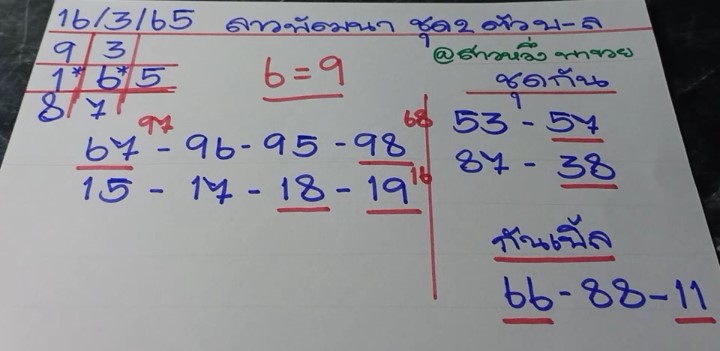 16/3/65 ลาวพัฒนา ชุด2ตัวบ-ล
@สาวหวึ่ง พารวย
9 3
1* 6* 5
8 7
6=9
ชุดกัน
97
67-96-95-98 68
15-17-18-19 16
53-57
87-38
กันเบิ้ล
66-88-11